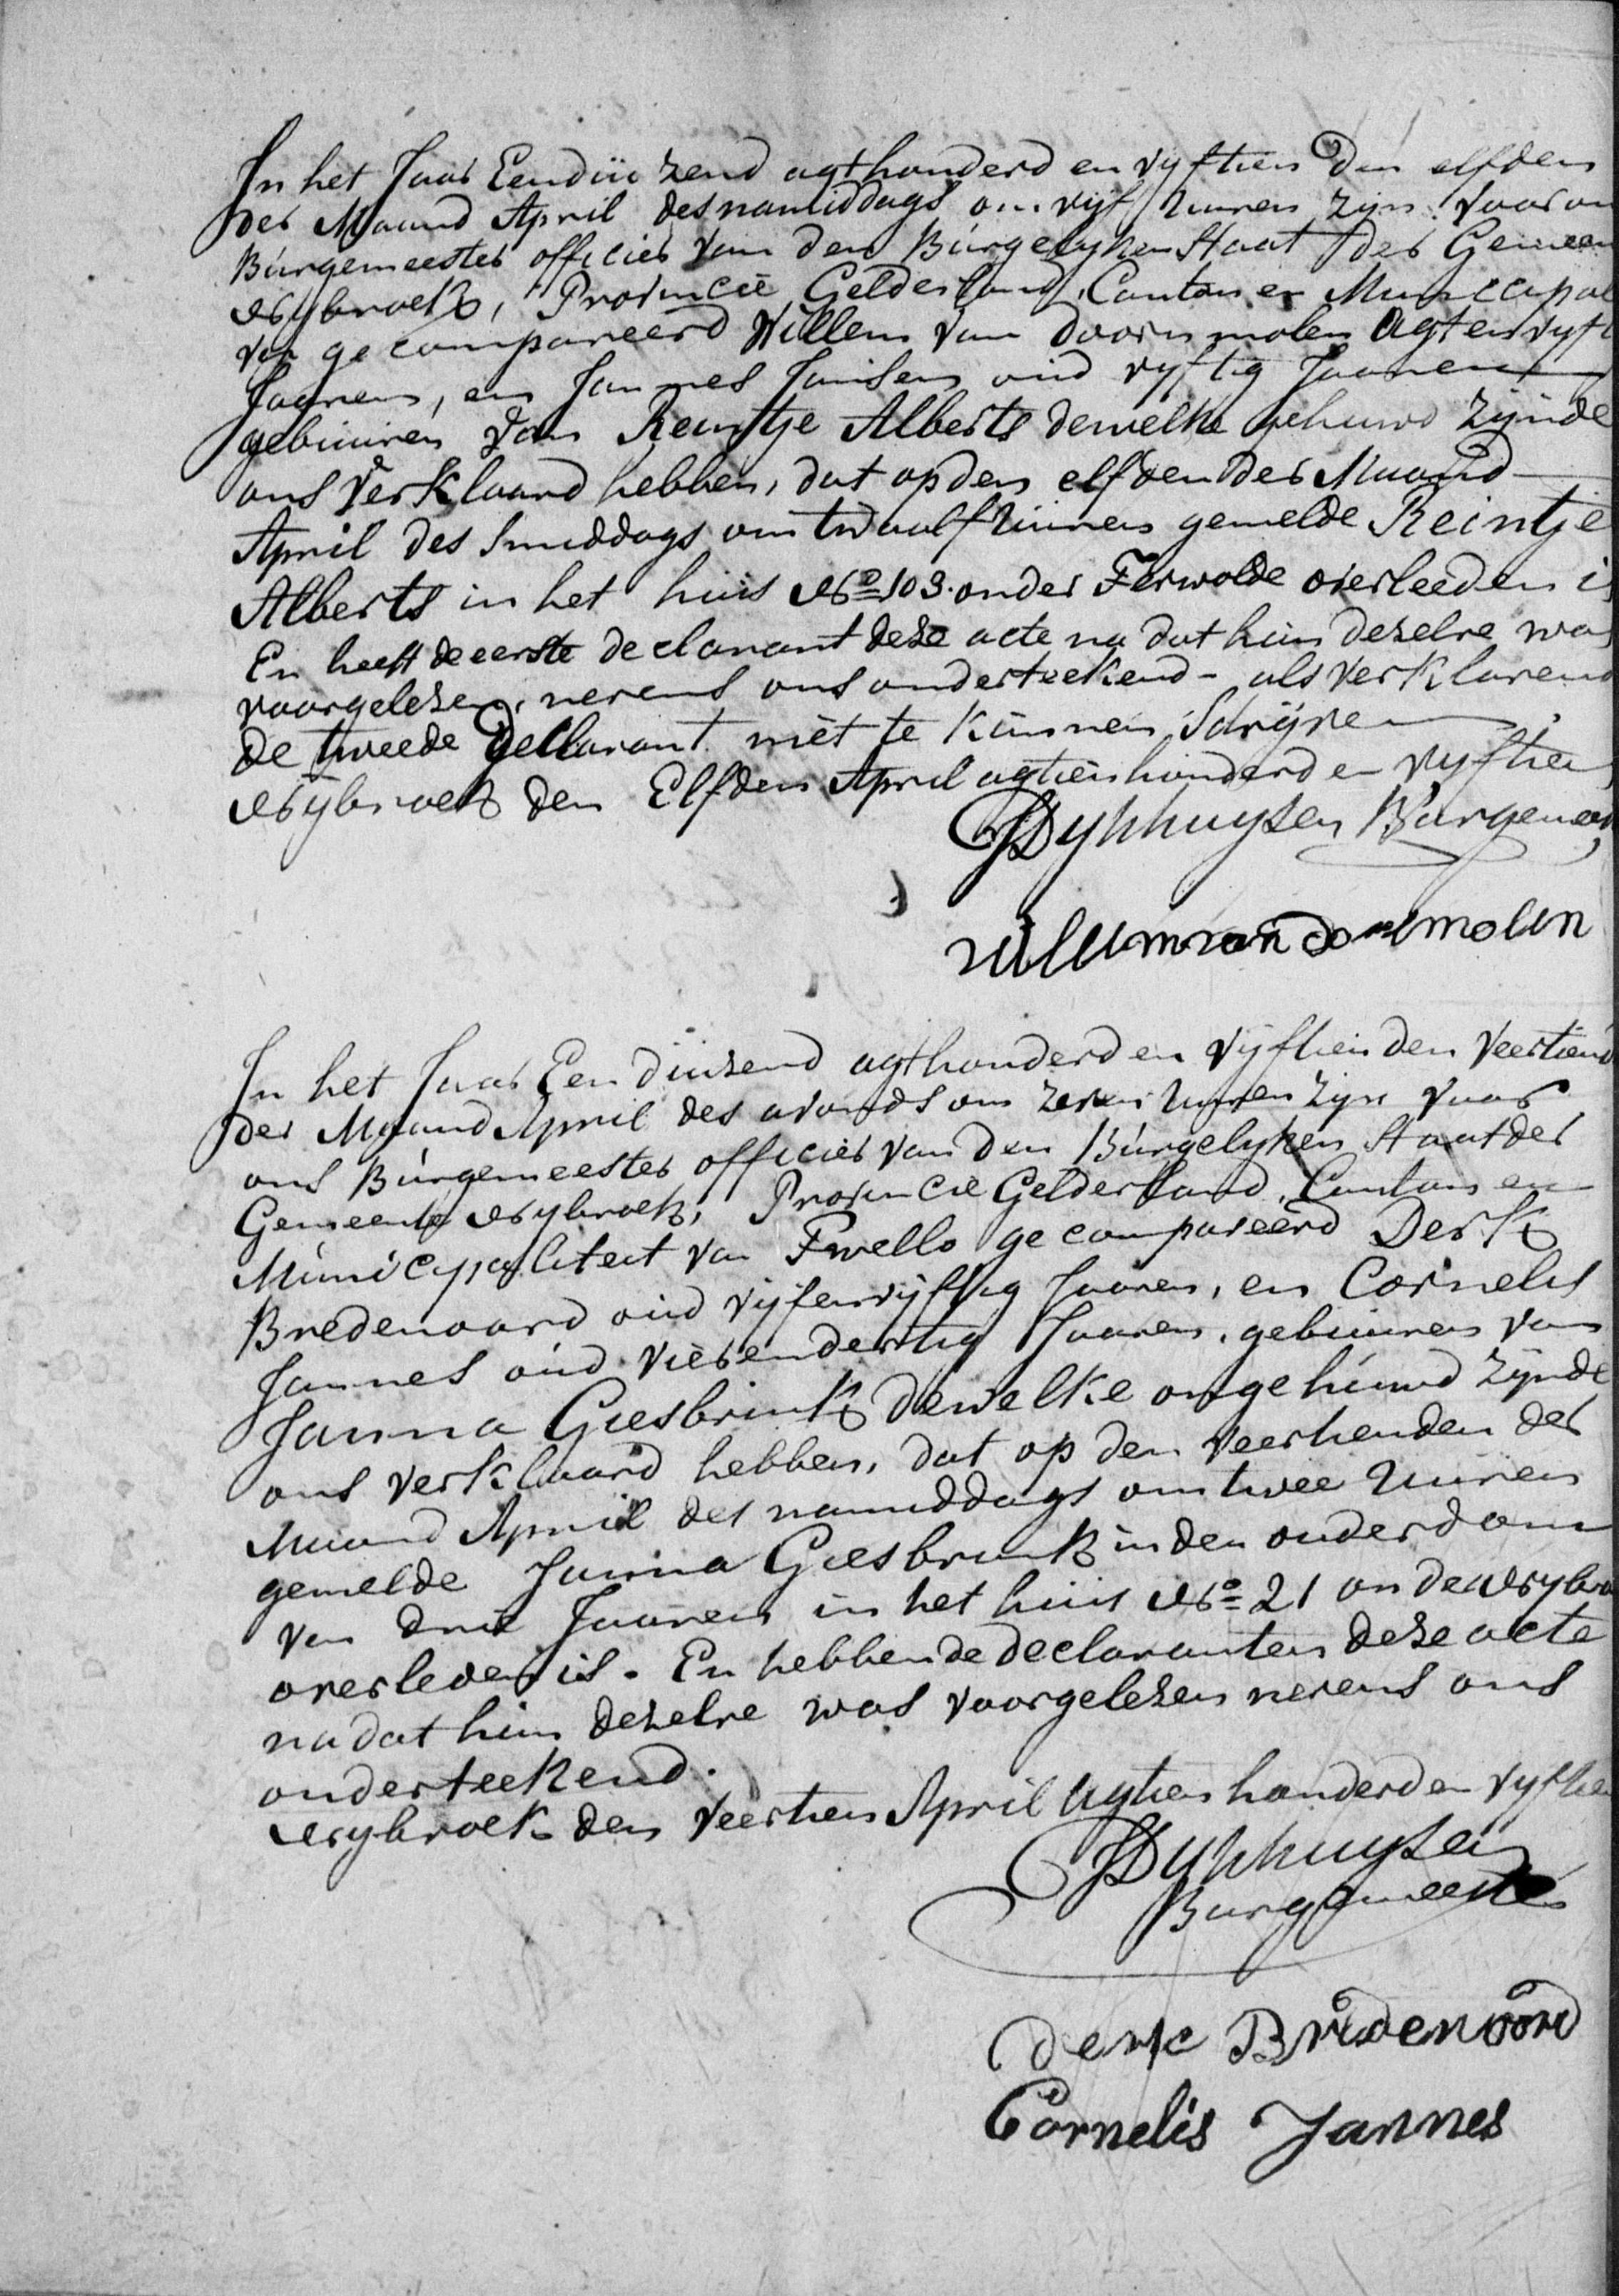 In het Jaar Eenduizend agthonderd en vyftien Den elfden
der Maand April des namiddags om vijf Uuren zijn voor on
Burgemeester officier van den Burgelyken Staat der Gemeen
Nybroek, Provincie Gelderland, Canton en Municipal
van gecompareerd Willem van Doornmolen Agtenvyft
Jaaren, en Jannes Jansen oud vyftig Jaaren
gebuuren van Reintje Alberts dewelke gehuwd zijnde
ons verklaard hebben, dat op den elfden der Maand
April des Smiddags om twaalf Uuren gemelde Reintje
Alberts in het huis No 103. onder Terwolde overleeden is
En heeft de eerste declarant deze acte na dat hun dezelve was
voorgelezen, nevens ons onderteekend - als verklarend
de tweede Declarant niet te kunnen Schrijven
Nybroek den Elfden April agtienhonderd en vyftien
Dyphuyzen Burgemees
willem van doornmolen
In het Jaar Een duizend agthonderd en vijftien den veertiend
der Maand April des avonds om zeven Uuren zijn voor
ons Burgemeester officier van den Burgelyken Staat der
Gemeente Nybroek, Provincie Gelderland, Canton en
Municipaliteit van Twello gecompareerd Derk
Bredenoord oud vijfenvijftig Jaaren, en Cornelis
Jannes oud vierendertig Jaaren, gebuuren van
Janna Giesbrink dewelke ongehuwd zijnde
ons verklaard hebben, dat op den veertienden der
Maand April des namiddags om twee Uuren
gemelde Janna Giesbrink in den ouderdom
van drie Jaaren in het huis No 21 onder Nybro
overleden is. En hebben de declaranten deze acte
na dat hun dezelve was voorgelezen nevens ons
onderteekend.
Nybroek den veertien April Agtienhonderd en vyftien
Dyphuyzen
Burgemeester
derk Bredenoord
Cornelis Jannes